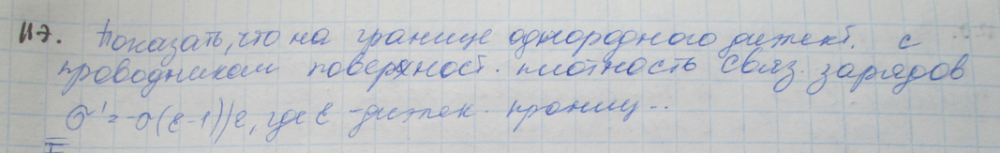 117. Показать, что на границе однородного диэлект. с
проводником поверхност. плотность связ. зарядов
σ'=-σ(ε-1)/ε, где ε -диэлек. прониц..